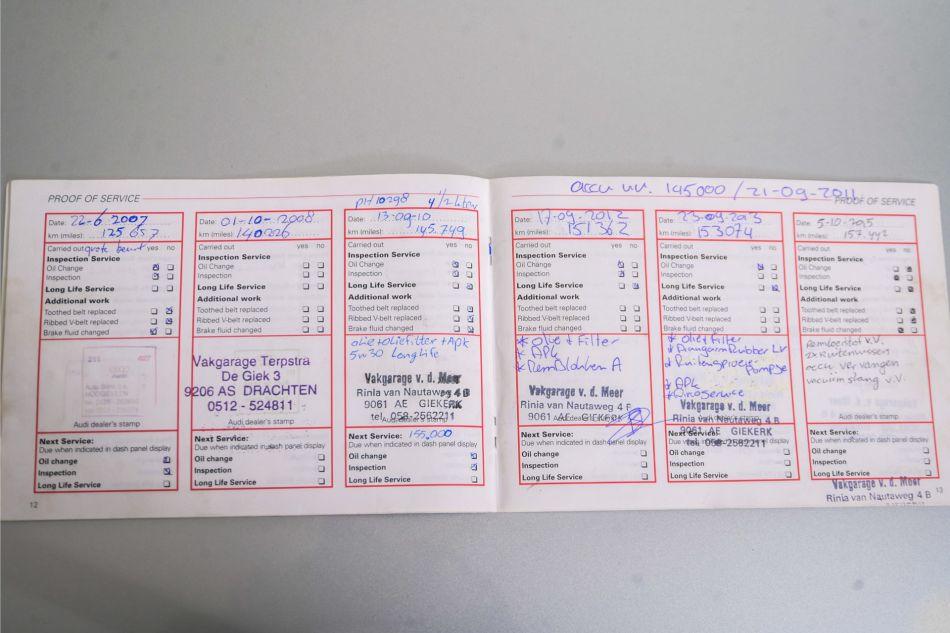 PROOF OF SERVICE
Date: 22-6 2007
km (miles): 125.657
Carried out grote beurt yes no
Inspection Service
Oil Change
Inspection
Long Life Service
Additional work
Toothed belt replaced
Ribbed V-belt replaced
Brake fluid changed
Audi dealer's stamp
Next Service:
Due when indicated in dash panel display
Oil change
Inspection
Long Life Service
12
Date: 01-10-2008
km (miles): 140226
Carried out yes no
Inspection Service
Oil Change
Inspection
Long Life Service
Additional work
Toothed belt replaced
Ribbed V-belt replaced
Brake fluid changed
Vakgarage Terpstra
De Giek 3
9206 AS DRACHTEN
0512 - 524811
Audi dealer's stamp
Next Service:
Due when indicated in dash panel display
Oil change
Inspection
Long Life Service
PH10298 4 1/2 liter
Date: 13-09-10
km (miles): 145.749
Carried out yes no
Inspection Service
Oil Change
Inspection
Long Life Service
Additional work
Toothed belt replaced
Ribbed V-belt replaced
Brake fluid changed
olie + oliefilter + Apk
5w30 Longlife
Vakgarage v. d. Meer
Rinia van Nautaweg 4 B
9061 AE GIEKERK
tel. 058-2562211
Audi dealer's stamp
Next Service: 155.000
Due when indicated in dash panel display
Oil change
Inspection
Long Life Service
accu vv. 145000 / 21-09-2011
PROOF OF SERVICE
Date: 17-09-2012
km (miles): 151362
Carried out yes no
Inspection Service
Oil Change
Inspection
Long Life Service
Additional work
Toothed belt replaced
Ribbed V-belt replaced
Brake fluid changed
* olie + Filter
* APk
Vakgarage v. d. Meer
Rinia van Nautaweg 4 B
9061 AE GIEKERK
Audi dealer's stamp
Next Service:
Due when indicated in dash panel display
Oil change
Inspection
Long Life Service
Date: 23-09-2013
km (miles): 153074
Carried out yes no
Inspection Service
Oil Change
Inspection
Long Life Service
Additional work
Toothed belt replaced
Ribbed V-belt replaced
Brake fluid changed
* olie + filter
* Draagarm Rubber LV
* Ruitensproeier
Pompje
* APk
* Aircoservice
Vakgarage v. d. Meer
Rinia van Nautaweg 4 B
9061 AE GIEKERK
tel. 058-2562211
Next Service:
Due when indicated in dash panel display
Oil change
Inspection
Long Life Service
Date: 5-10-2015
km (miles): 157.442
Carried out yes no
Inspection Service
Oil Change
Inspection
Long Life Service
Additional work
Toothed belt replaced
Ribbed V-belt replaced
Brake fluid changed
Remvloeistof v.v.
2x Ruitenwissers
accu vervangen
vacuumslang v.v.
Audi dealer's stamp
Next Service:
Due when indicated in dash panel display
Oil change
Inspection
Long Life Service
Vakgarage v. d. Meer
Rinia van Nautaweg 4 B
13